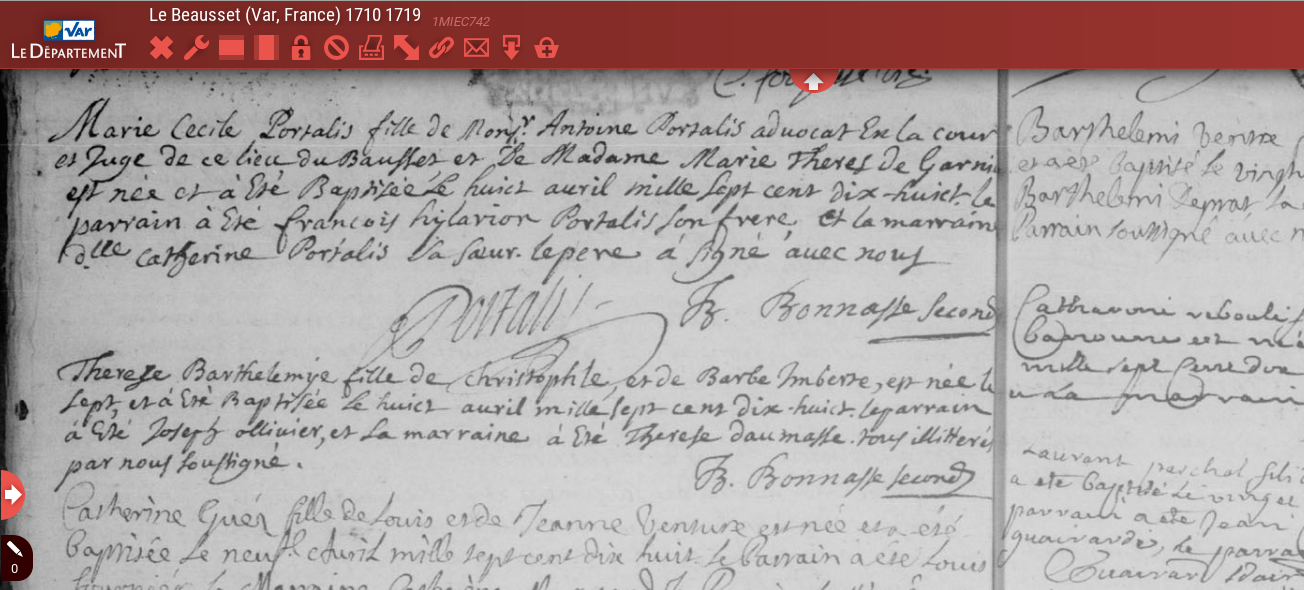 Le Beausset (Var, France) 1710 1719 1MIEC742
Var
LE DÉPARTEMENT
Marie Cecile Portalis fille de Monsr. Antoine Portalis advocat En la cour
et Juge de ce lieu du Bausset et De Madame Marie Theres De Garni
est née et à Eté Baptisée Le huict auril mille sept cent dix-huict. le
parrain à Eté francois hylarion Portalis son frere, Et la marraine
dlle Catherine Portalis Sa sœur. le pere á signé auec nous
Portalis
B. Bonnasse second
Therese Barthelemye fille de christophle et de Barbe Imberte, est née le
sept, et à Eté Baptisée Le huict auril mille sept cent dix-huict. le parrain
à Eté Joseph ollivier, et La marraine à Eté Therese daumasse. tous illiterés
par nous soussigné.
B. Bonnasse second
Catherine Gués fille de Louis et de Jeanne Venture est née et a été
baptisée Le neuf d'avril mille sept cent dix huit. le parrain a été Louis
Barthelemi Ventre
et a été baptisé Le vingt
Barthelemi Deprat La
Parrain soussigné auéc n
mille sept cent dix
La marraine
Laurant paschal fils
a ete baptisé Le vingt et
parrain a ete Jean
0